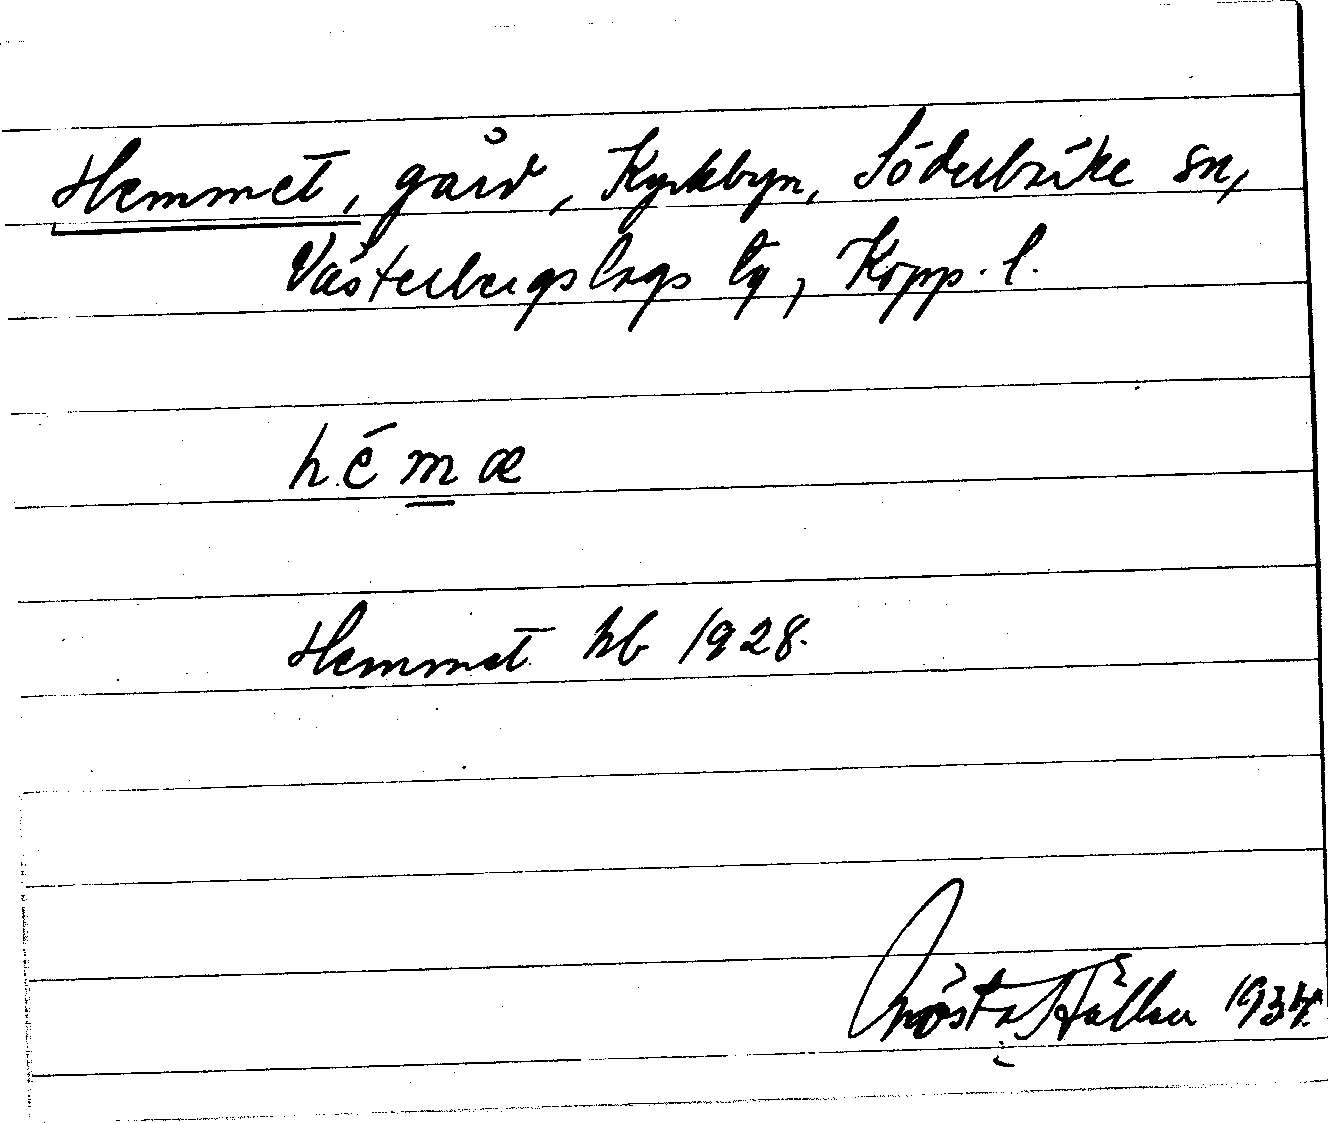 Hemmet, gård, Kyrkbyn, Söderbärke sn,
Västerbergslags tg, Kopp. l.
hémæ
Hemmet hb 1928.
Gösta Hållen 1934.